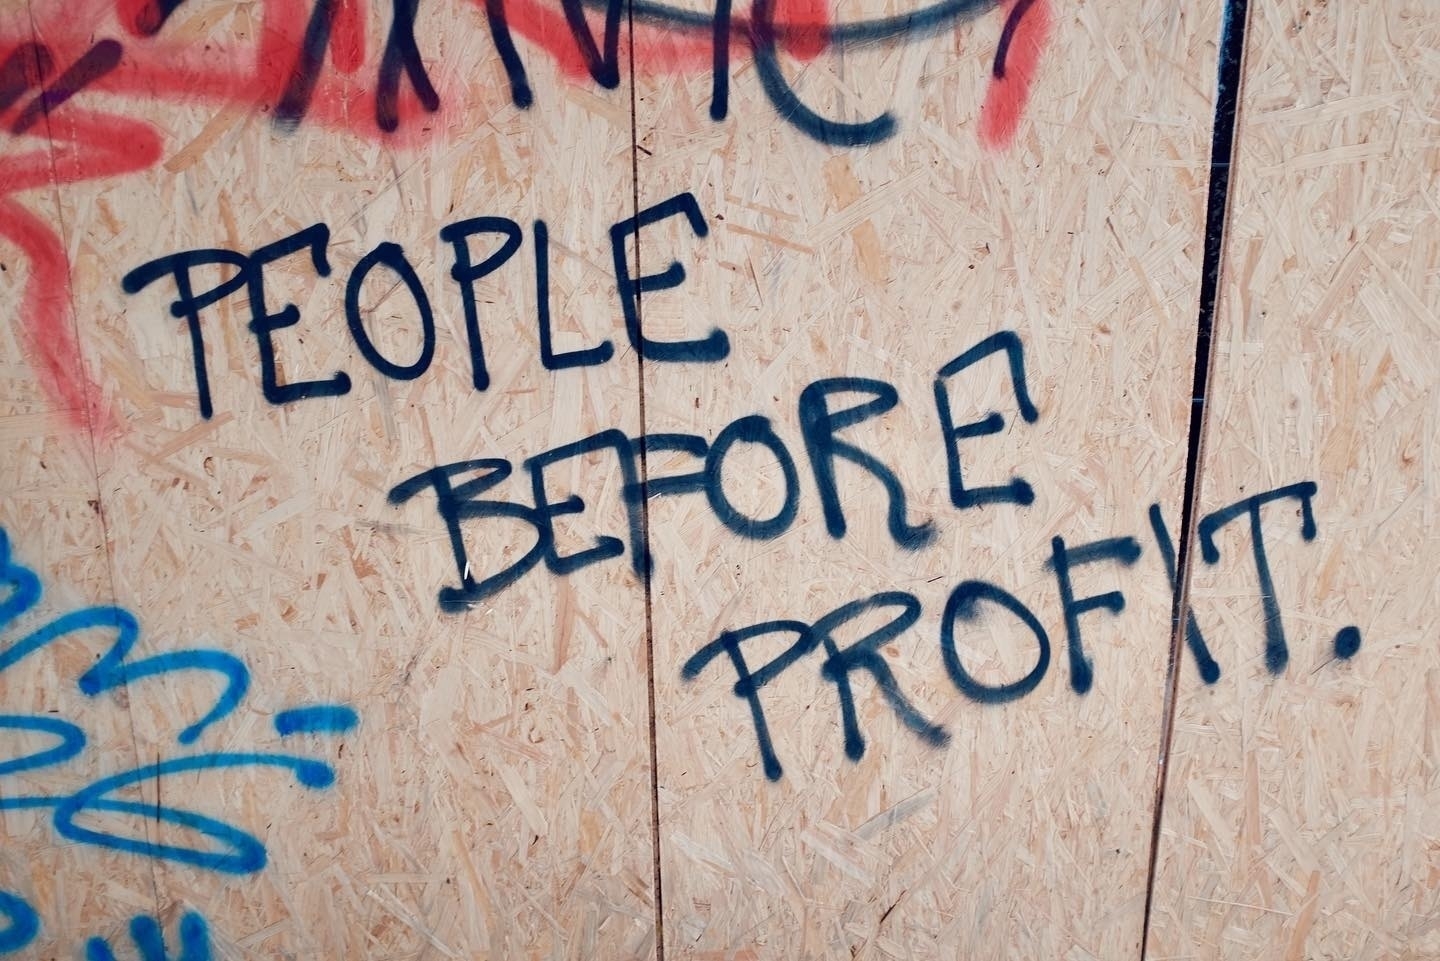 PEOPLE
BEFORE
PROFIT.